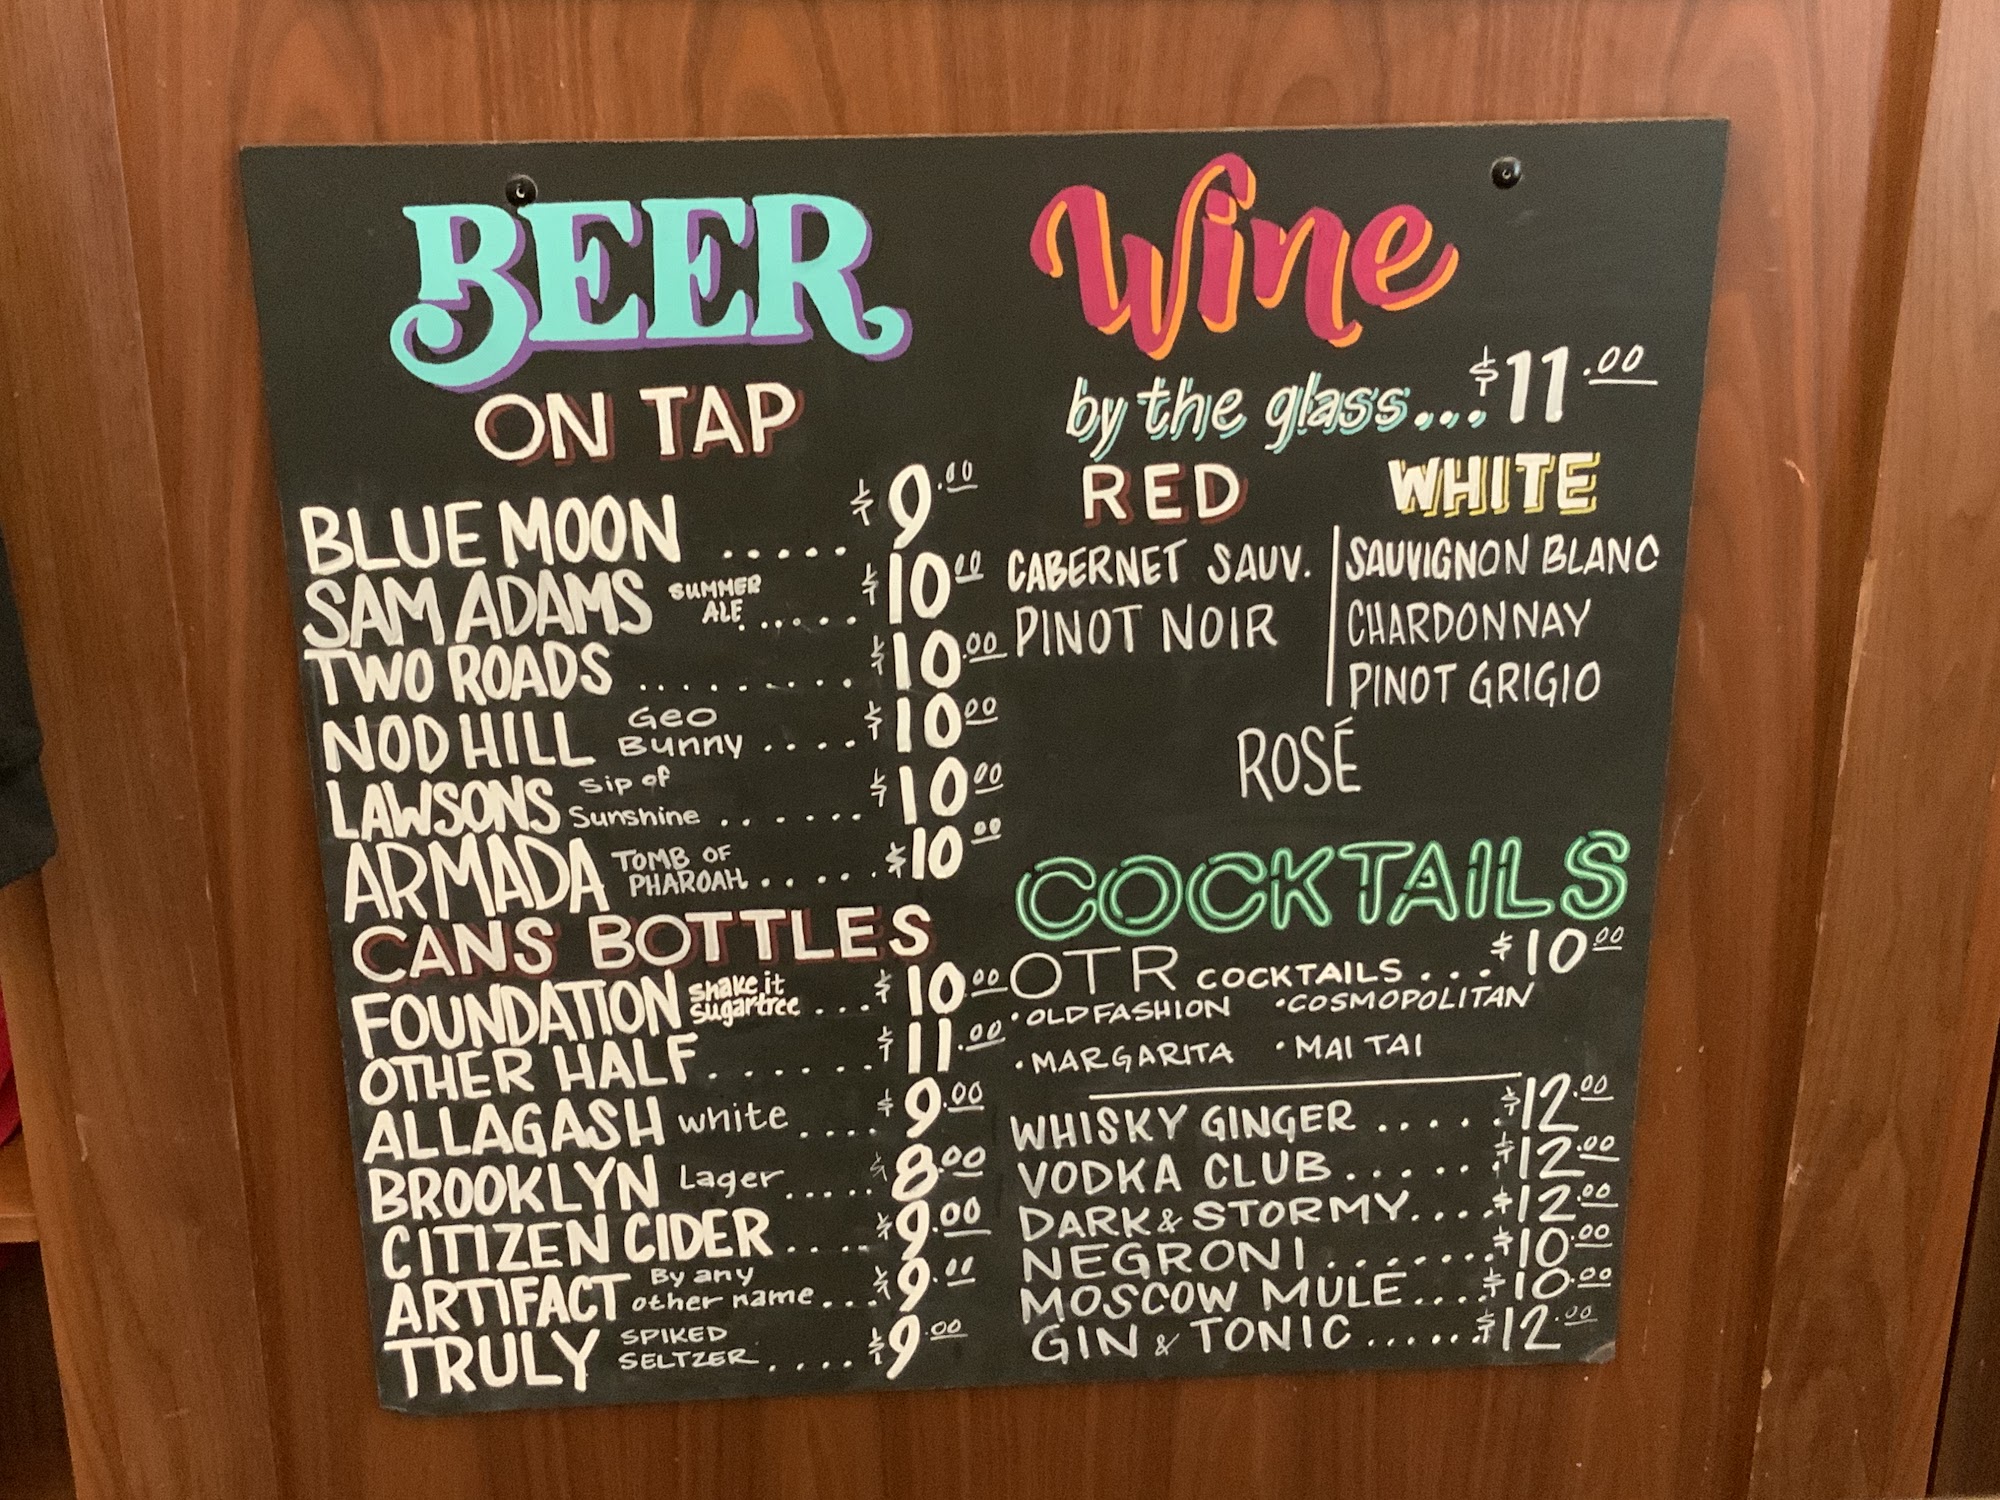 BEER
ON TAP
BLUE MOON ..... $9.00
SAM ADAMS SUMMER ALE ..... $10.00
TWO ROADS ......... $10.00
NOD HILL Geo Bunny .... $10.00
LAWSONS Sip of Sunshine ...... $10.00
ARMADA TOMB OF PHAROAH ..... $10.00
CANS BOTTLES
FOUNDATION shake it sugartree ... $10.00
OTHER HALF ....... $11.00
ALLAGASH white .... $9.00
BROOKLYN Lager ..... $8.00
CITIZEN CIDER .... $9.00
ARTIFACT By any other name ... $9.00
TRULY SPIKED SELTZER .... $9.00
Wine
by the glass... $11.00
RED
CABERNET SAUV.
PINOT NOIR
WHITE
SAUVIGNON BLANC
CHARDONNAY
PINOT GRIGIO
ROSÉ
COCKTAILS
OTR COCKTAILS ... $10.00
• OLD FASHION • COSMOPOLITAN
• MARGARITA • MAI TAI
WHISKY GINGER ..... $12.00
VODKA CLUB ...... $12.00
DARK & STORMY .... $12.00
NEGRONI ....... $10.00
MOSCOW MULE .... $10.00
GIN & TONIC ...... $12.00